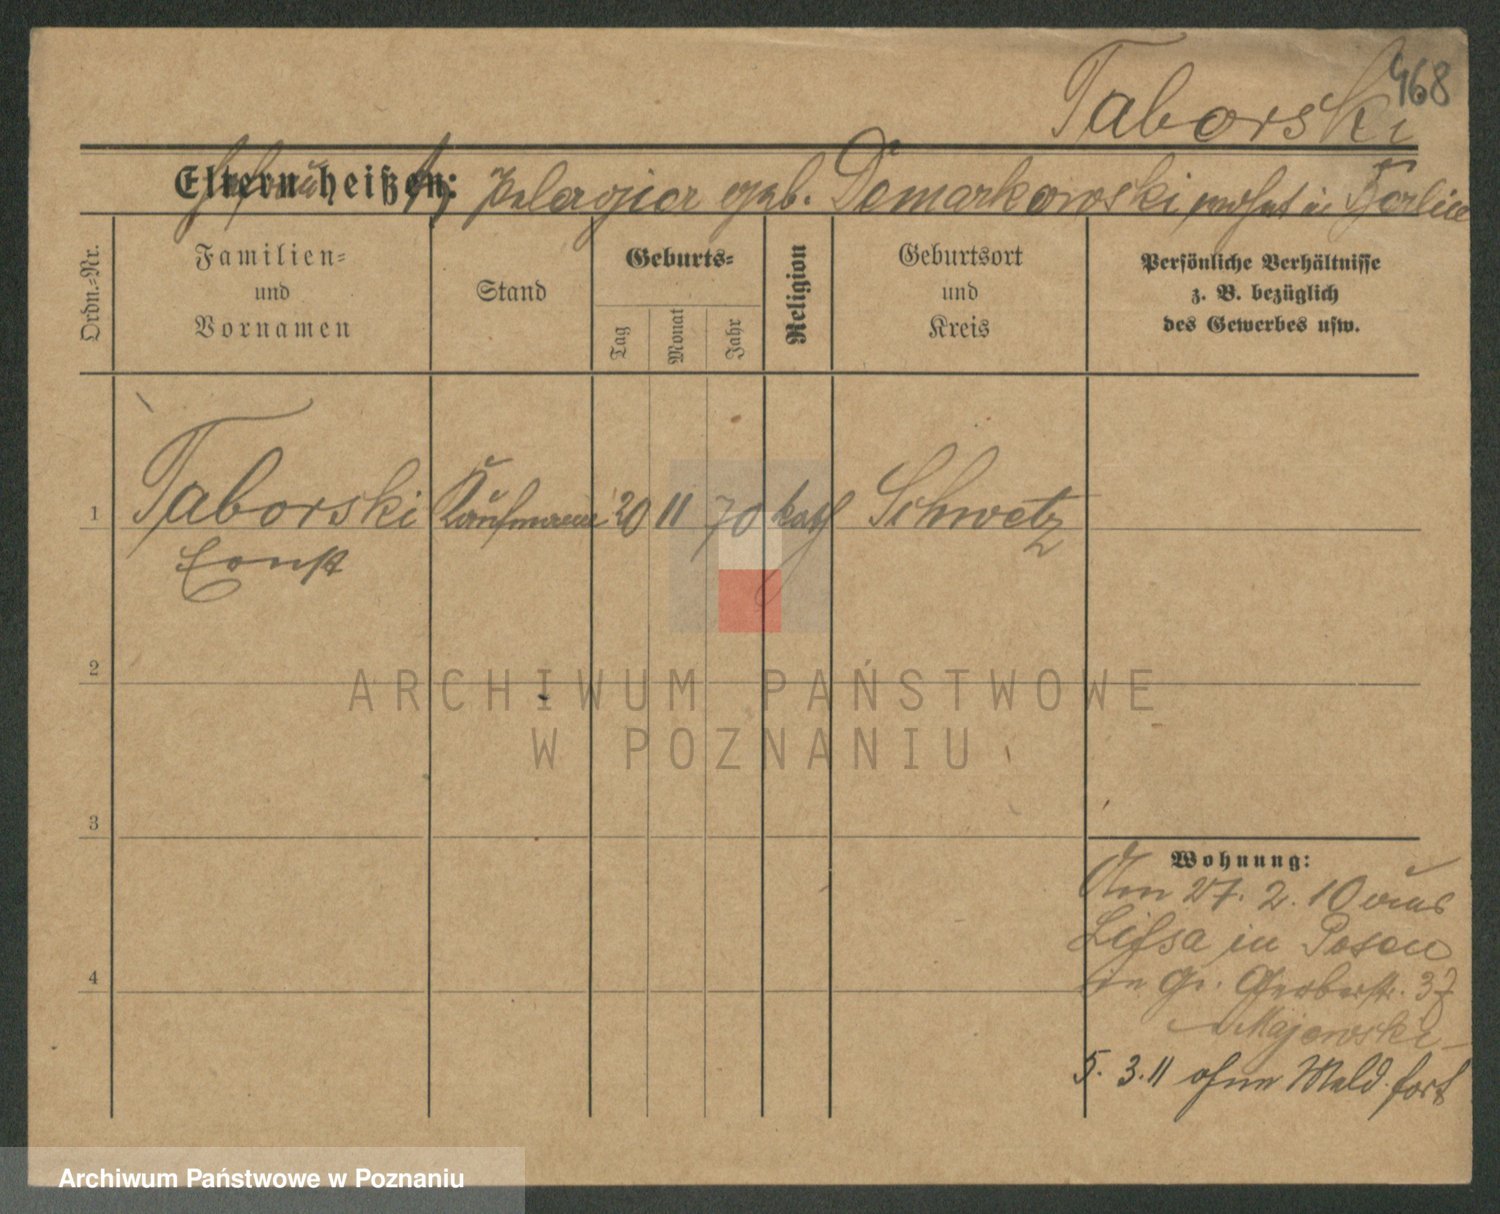 468
Taborski
Eltern heißen:
Ehefrau Pelagia geb. Domarkowski wohnt in Berlin
Ordn.-Nr.
Familien-
und
Vornamen
Stand
Geburts-
Tag
Monat
Jahr
Religion
Geburtsort
und
Kreis
Persönliche Verhältnisse
z. B. bezüglich
des Gewerbes usw.
1 Taborski Kaufmann 20 11 70 kath Schwetz
Ernst
2
3
4
Wohnung:
Am 27. 2. 10 aus
Lissa in Posen
in Gr. Gerberstr. 37
Majewski
5. 3. 11 ohne Meld. fort
ARCHIWUM PAŃSTWOWE
W POZNANIU
Archiwum Państwowe w Poznaniu